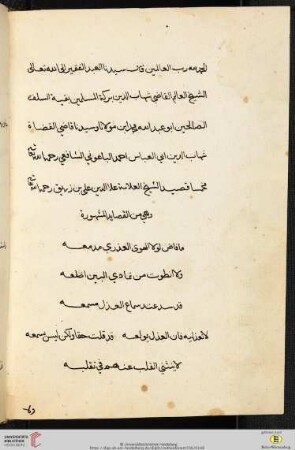 الحمد لله رب العالمين قال سيدنا العبد الفقير الى الله تعالى
الشيخ العالم القاضي شهاب الدين بركة المسلمين بقية السلف
الصالحين ابو عبد الله محمد ابن مولانا وسيدنا قاضي القضاة
شهاب الدين ابي العباس احمد الباعوني الشافعي رحمه الله
مخمسا قصيد الشيخ العلامة علا الدين علي بن زريق رحمه الله
وهي من القصايد المشهورة
ما فاض لولا الهوى العذري مدمعه
ولا انطوت من تمادي البين اضلعه
قد سد عند سماع العذل مسمعه
لا تعذليه فان العذل يولعه قد قلت حقا ولكن ليس يسمعه
لا ينثني القلب عنهم في تقلبه
UNIVERSITÄTS-BIBLIOTHEK HEIDELBERG
© Universitätsbibliothek Heidelberg
gefördert durch die
Baden-Württemberg Stiftung